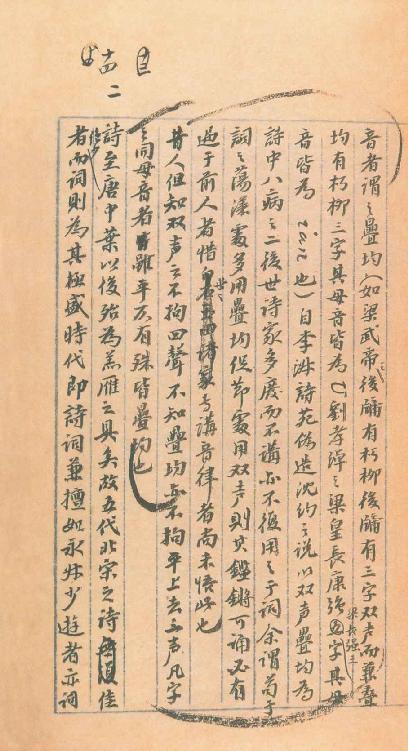 十四
二
音者謂之疊均（如梁武帝後牖有朽柳後牖有三字双声而兼疊
均有朽柳三字其母音皆為u劉孝綽之梁皇長康強 梁長強三字其母
音皆為ian也）自李淑詩苑偽造沈約之說以双声疊均為
詩中八病之二後世詩家多廢而不講亦不復用之于詞余謂苟于
詞之蕩漾處多用疊均促節處用双声則其鏗鏘可誦必有
過于前人者惜世之專講音律者尚未悟此也
昔人但知双声之不拘四聲不知疊均亦不拘平上去三声凡字
之同母音者雖平仄有殊皆疊均也
詩至唐中葉以後殆為羔雁之具矣故五代北宋之詩佳
者而詞則為其極盛時代即詩詞兼擅如永叔少游者亦詞